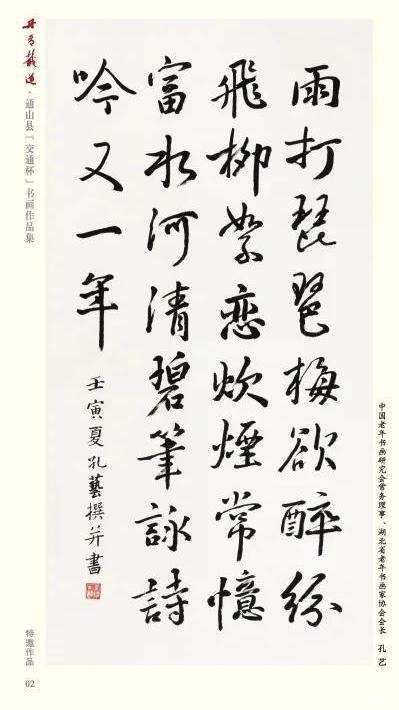 雨打琵琶梅欲醉纷
飛柳絮恋炊煙常憶
富水河清碧筆詠詩
吟又一年
壬寅夏孔藝撰并書
中国老年书画研究会常务理事、湖北省老年书画家协会会长 孔 艺
丹青載道·通山县「交通杯」书画作品集
特邀作品
02